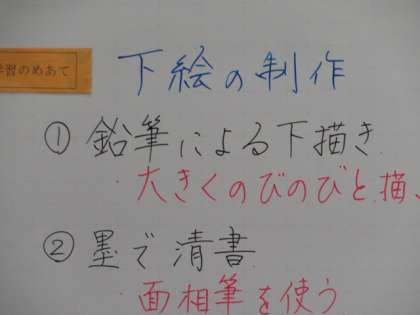 学習のめあて
下絵の制作
① 鉛筆による下描き
・大きくのびのびと描
② 墨で清書
・面相筆を使う